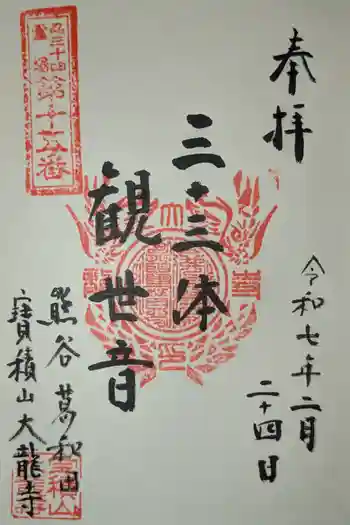 奉拝
令和七年二月
二十四日
三十三体
観世音
熊谷 葛和田
寶積山 大龍寺
第十五番